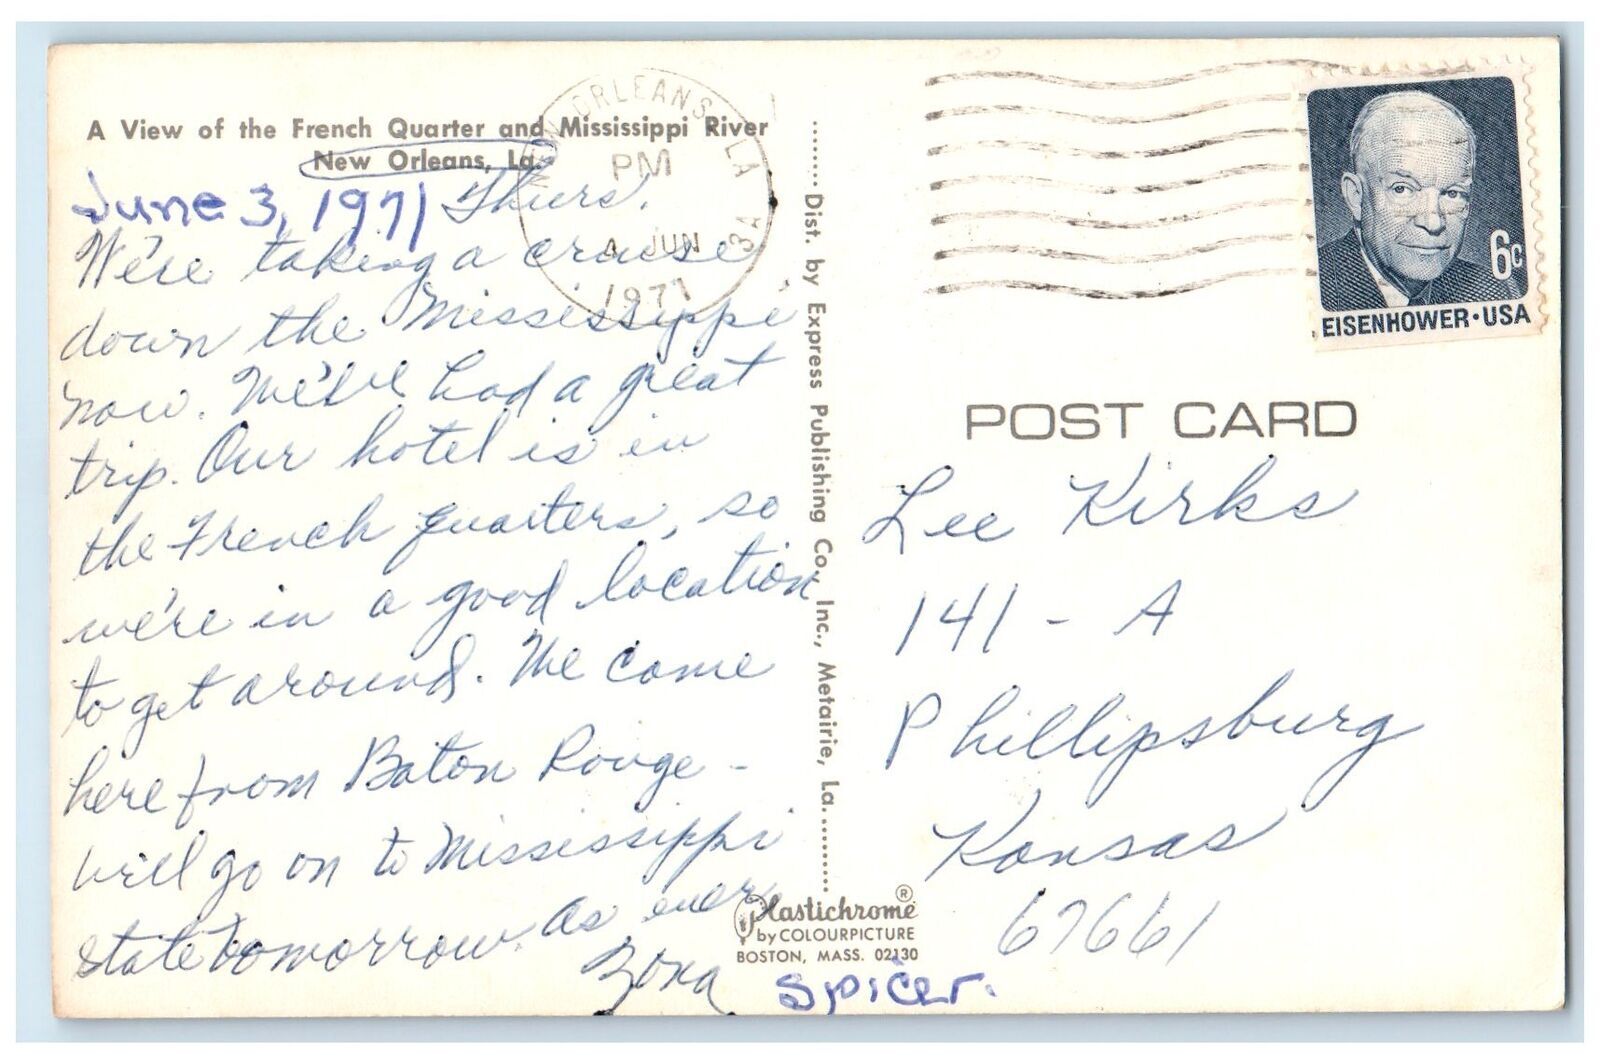 A View of the French Quarter and Mississippi River
New Orleans, La.
June 3, 1971 Thurs.
We're taking a cruise
down the Mississippi
now. We've had a great
trip. Our hotel is in
the French quarters, so
we're in a good location
to get around. We came
here from Baton Rouge -
will go on to Mississippi
state tomorrow As ever
Zona Spicer.
NEW ORLEANS, LA
PM
4 JUN
1971
Dist. by Express Publishing Co., Inc., Metairie, La.
Plastichrome®
by COLOURPICTURE
BOSTON, MASS. 02130
6c
EISENHOWER·USA
POST CARD
Lee Kirks
141 - A
Phillipsburg
Kansas
67661